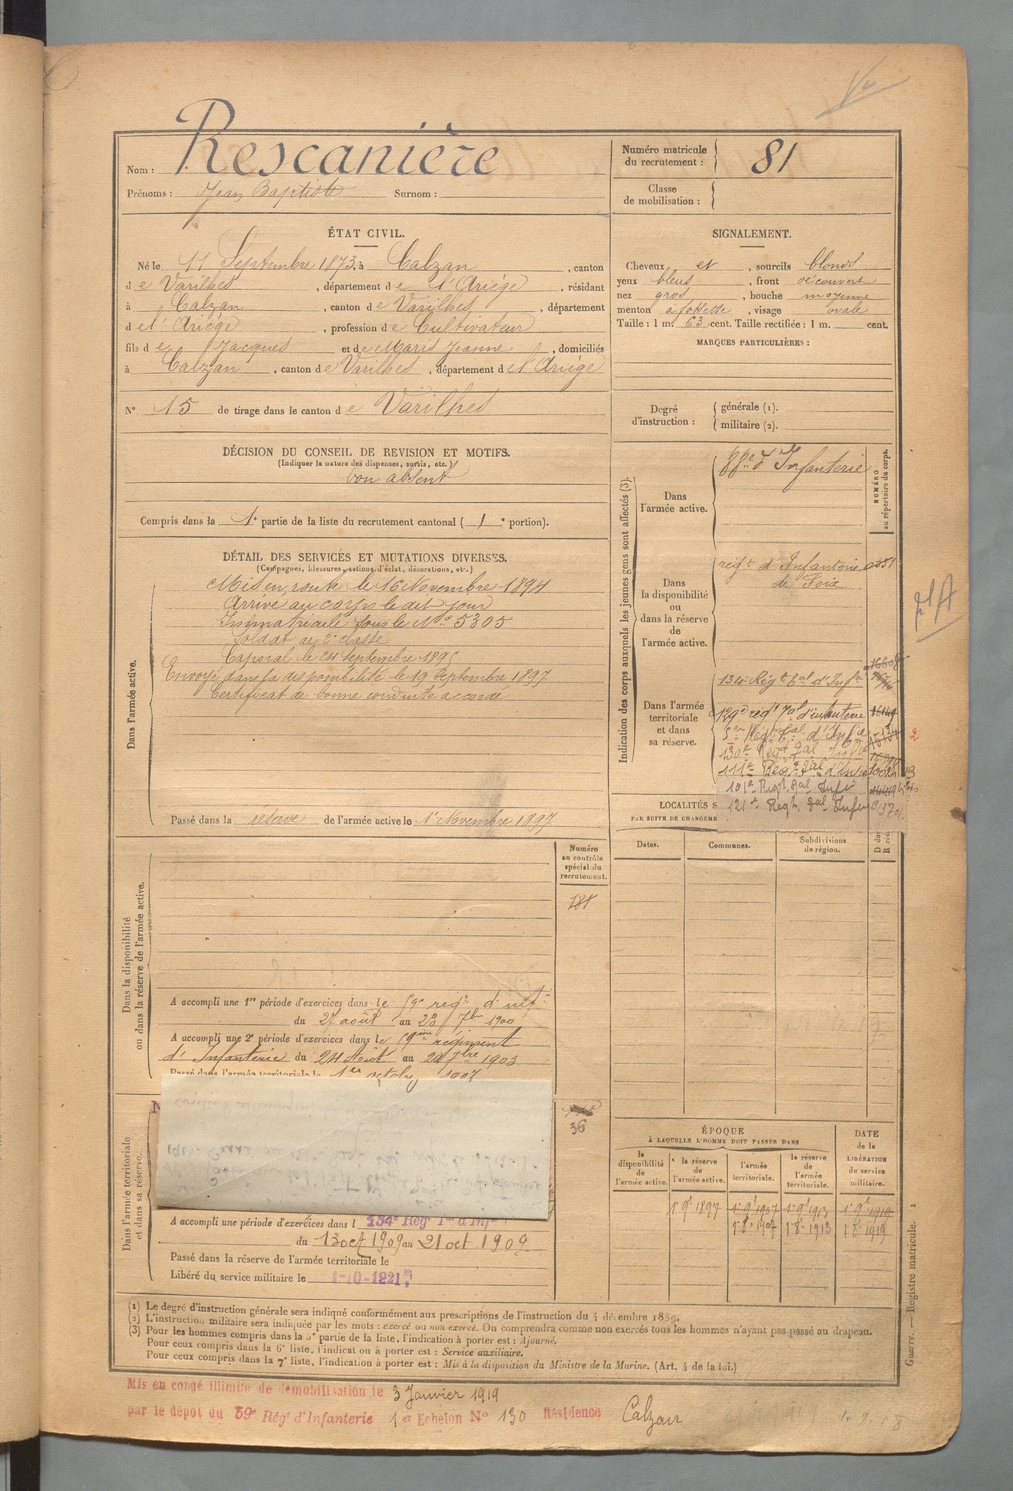 Nom : Rescanière
Prénoms : Jean Baptiste Surnom :
Numéro matricule du recrutement : 81
Classe de mobilisation :
ÉTAT CIVIL.
Né le 11 Septembre 1873, à Calzan, canton
de Varilhes, département de l'Ariège, résidant
à Calzan, canton de Varilhes, département
de l'Ariège, profession de Cultivateur
fils de Jacques et de Marie Jeanne, domiciliés
à Calzan, canton de Varilhes, département de l'Ariège
N° 15 de tirage dans le canton de Varilhes
SIGNALEMENT.
Cheveux et, sourcils blonds
yeux bleus, front découvert
nez gros, bouche moyenne
menton à fossette, visage ovale
Taille : 1 m. 63 cent. Taille rectifiée : 1 m. cent.
MARQUES PARTICULIÈRES :
Degré d'instruction : générale (1). militaire (2).
DÉCISION DU CONSEIL DE REVISION ET MOTIFS.
(Indiquer la nature des dispenses, sursis, etc.)
bon absent
Compris dans la 1e partie de la liste du recrutement cantonal (1e portion).
DÉTAIL DES SERVICES ET MUTATIONS DIVERSES.
(Campagnes, blessures, actions d'éclat, décorations, etc.)
Dans l'armée active.
Mis en route le 16 Novembre 1894
Arrivé au corps le dit jour
Immatriculé sous le No 5305
Soldat de 2e classe
Caporal le 24 Septembre 1895
Envoyé dans la disponibilité le 19 Septembre 1897
Certificat de bonne conduite accordé
Passé dans la réserve de l'armée active le 1er Novembre 1897
Indication des corps auxquels les jeunes gens sont affectés (3).
NUMÉRO au répertoire du corps.
Dans l'armée active.
88e d'Infanterie
Dans la disponibilité ou dans la réserve de l'armée active.
régt d'Infanterie 0351
de Foix
Dans l'armée territoriale et dans sa réserve.
134e Régt tal d'Infie
129e régt tal d'infanterie
130e Régt tal Infie
111e Régt tal d'Infie
101e Regt tal Infie
121e Regt tal Infie
LOCALITÉS S
PAR SUITE DE CHANGEME
Dates. Communes. Subdivisions de région.
Dans la disponibilité ou dans la réserve de l'armée active.
Numéro au contrôle spécial du recrutement.
181
A accompli une 1re période d'exercices dans le 59e régt d'inf
du 27 août au 23 7bre 1900
A accompli une 2e période d'exercices dans le 59me régiment
d'Infanterie du 24 Août au 20 7bre 1903
Passé dans l'armée territoriale le 1er octobre 1907
Dans l'armée territoriale et dans sa réserve.
36
A accompli une période d'exercices dans l 134e Rég Ter d'Inf
du 13 oct 1909 au 21 oct 1909
Passé dans la réserve de l'armée territoriale le
Libéré du service militaire le 1-10-1921
ÉPOQUE
À LAQUELLE L'HOMME DOIT PASSER DANS
DATE de la LIBÉRATION du service militaire.
la disponibilité de l'armée active. la réserve de l'armée active. l'armée territoriale. la réserve de l'armée territoriale.
1er 9bre 1897 1er 9bre 1907 1er 9bre 1913 1er 9bre 1919
1er 8bre 1907 1er 8bre 1913 1er 8bre 1919
(1) Le degré d'instruction générale sera indiqué conformément aux prescriptions de l'instruction du 4 décembre 1889.
(2) L'instruction militaire sera indiquée par les mots : exercé ou non exercé. On comprendra comme non exercés tous les hommes n'ayant pas passé au drapeau.
(3) Pour les hommes compris dans la 5e partie de la liste, l'indication à porter est : Ajourné.
Pour ceux compris dans la 6e liste, l'indication à porter est : Service auxiliaire.
Pour ceux compris dans la 7e liste, l'indication à porter est : Mis à la disposition du Ministre de la Marine. (Art. 4 de la loi.)
Guerre. — Registre matricule. 1
Mis en congé illimité de démobilisation le 3 Janvier 1919
par le dépôt du 59e Rég. d'Infanterie 1er Echelon N° 130 Résidence Calzan